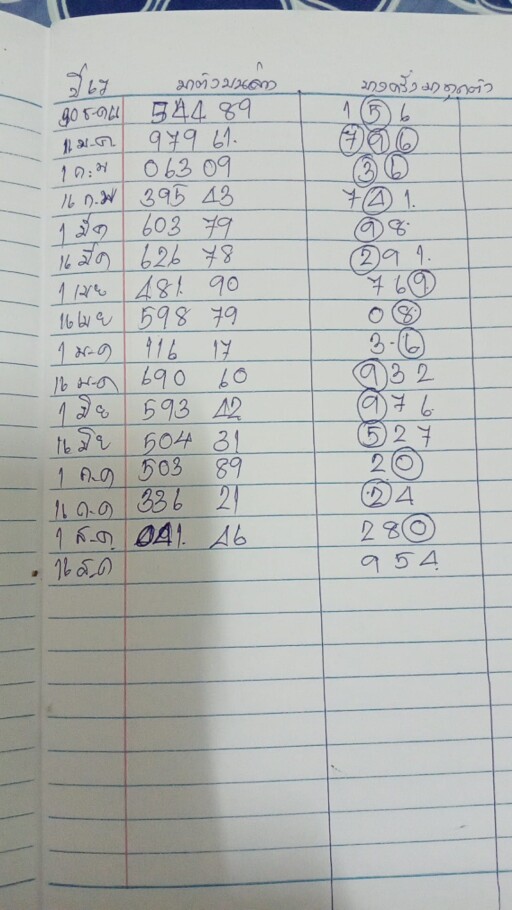 ปี 67 มาตัวบนต่ำ บางครั้งมาทุกตัว
30 ธ.ค 544 89 1 5 6
16 ม.ค 979 61. 7 9 6
1 ก.พ 063 09 3 6
16 ก.พ 395 43 7 4 1.
1 มีค 603 79 9 8.
16 มีค 626 78 2 9 1.
1 เมย 481. 90 7 6 9
16 เมย 598 79 0 8.
1 พ.ค 116 17 3.6
16 พ.ค 690 60 9 3 2
1 มิย 593 42 9 7 6
16 มิย 504 31 5 2 7
1 ก.ค 503 89 2 0
16 ก.ค 336 21 2 4
1 ส.ค 041. 46 2 8 0
16 ส.ค 9 5 4